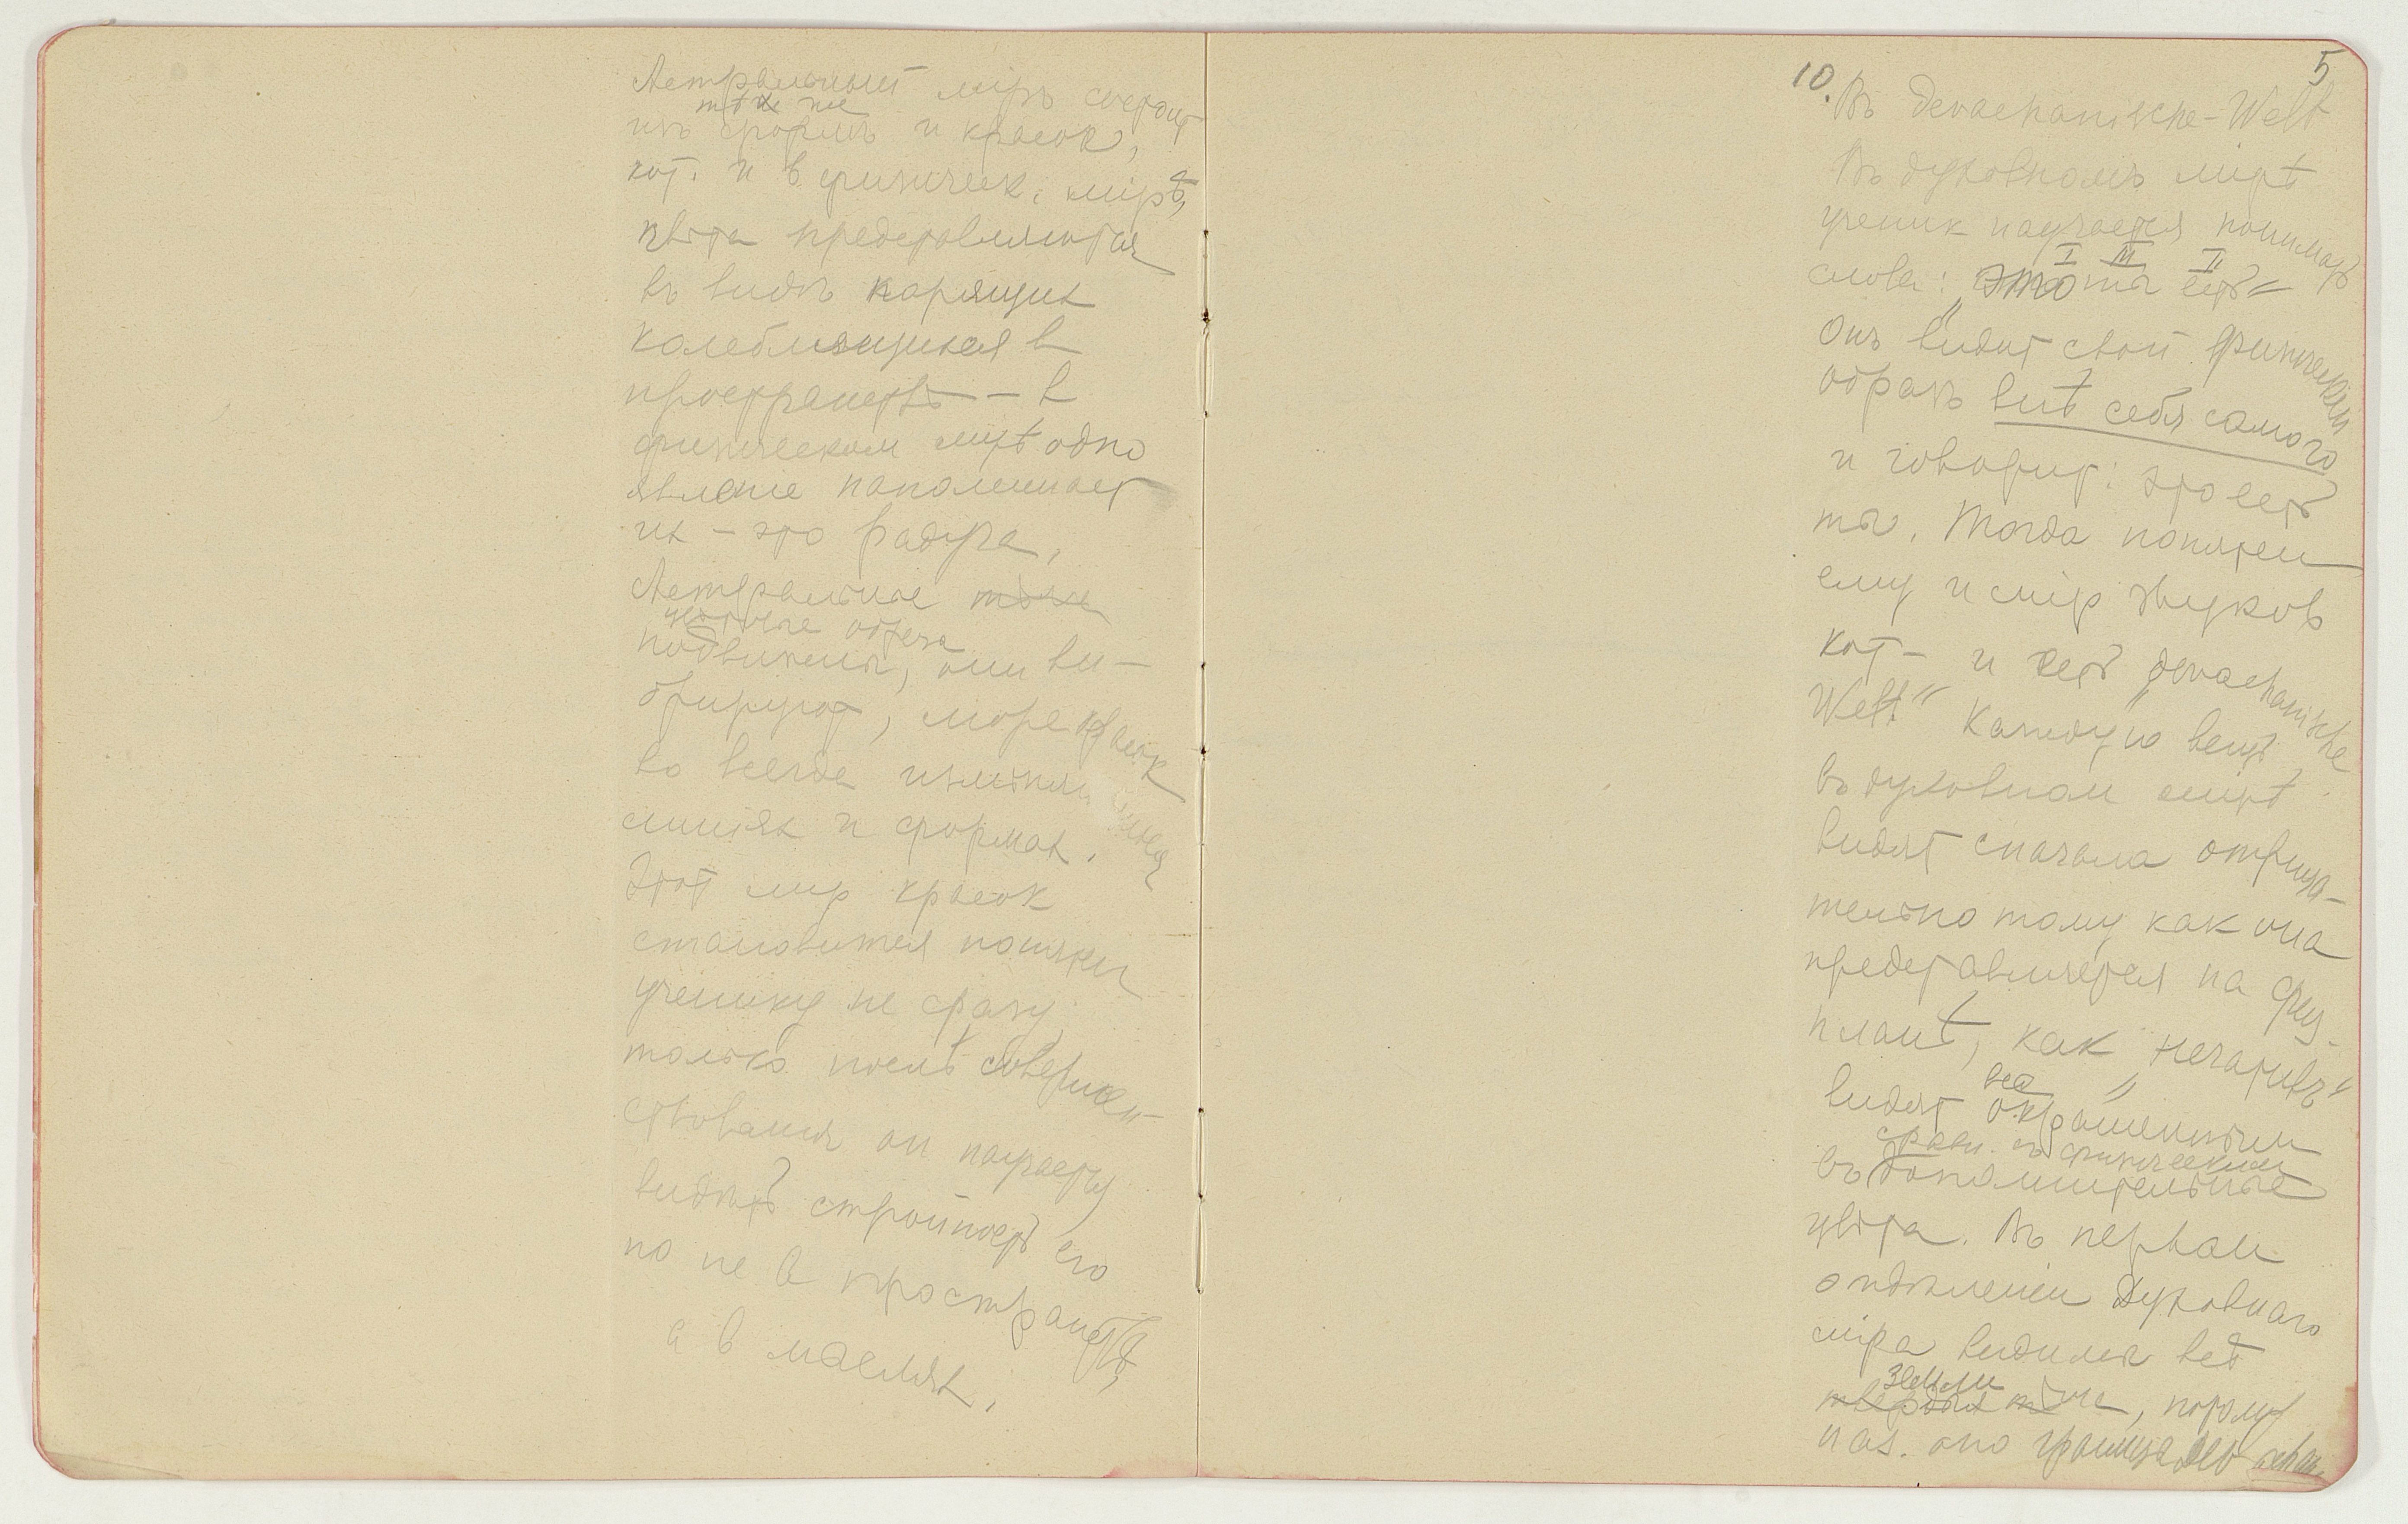 Астральный мiръ состоит
тѣхъ же
изъ формъ и красок,
кот. и в физическ. мiрѣ,
цвѣта представляются
въ видѣ парящих
колеблящихся в
пространствѣ — в
физическом мiрѣ одно
явленiе напоминает
их — это радуга,
Астральные тѣла
цвѣтные
подвижны, они ви-
брируют, море красок
во всегда измѣня
линiях и формах.
Этот мир красок
становится понятен
ученику не сразу,
только послѣ совершен-
ствованiя он научается
видѣть стройность его
но не в пространствѣ,
а в мыслях.
5
10. Въ devachanische-Welt
Въ духовномъ мiрѣ
ученик научается понимать
I III II
слова: „это ты есть“
Онъ видит свой физический
образъ внѣ себя самого
и говорит: это есть
ты. Тогда понятен
ему и мiр звуков
кот- и есть „devachanische
Welt.“ Каждую вещь
въ духовном мiрѣ
видят сначала отрица-
тельно тому как она
представляется на физ-
планѣ, как „негативъ“
все
видят окрашенным
сравн. съ физическими
въ дополнительные
цвѣта. Въ первом
отдѣленiи Духовнаго
мiра видимы всѣ
земли
твердыя тѣла, потому
наз. оно граница